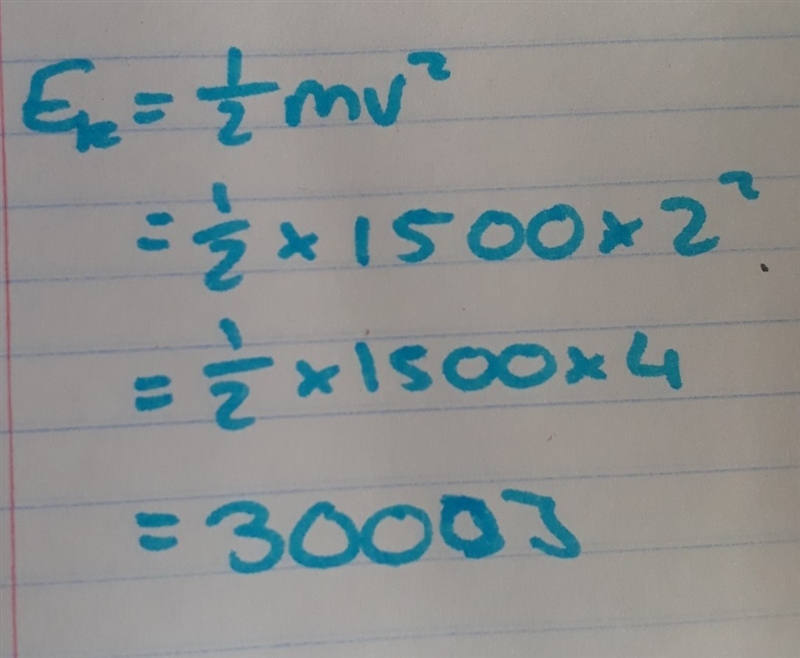 Eₖ = ½mv²
= ½ × 1500 × 2²
= ½ × 1500 × 4
= 3000J